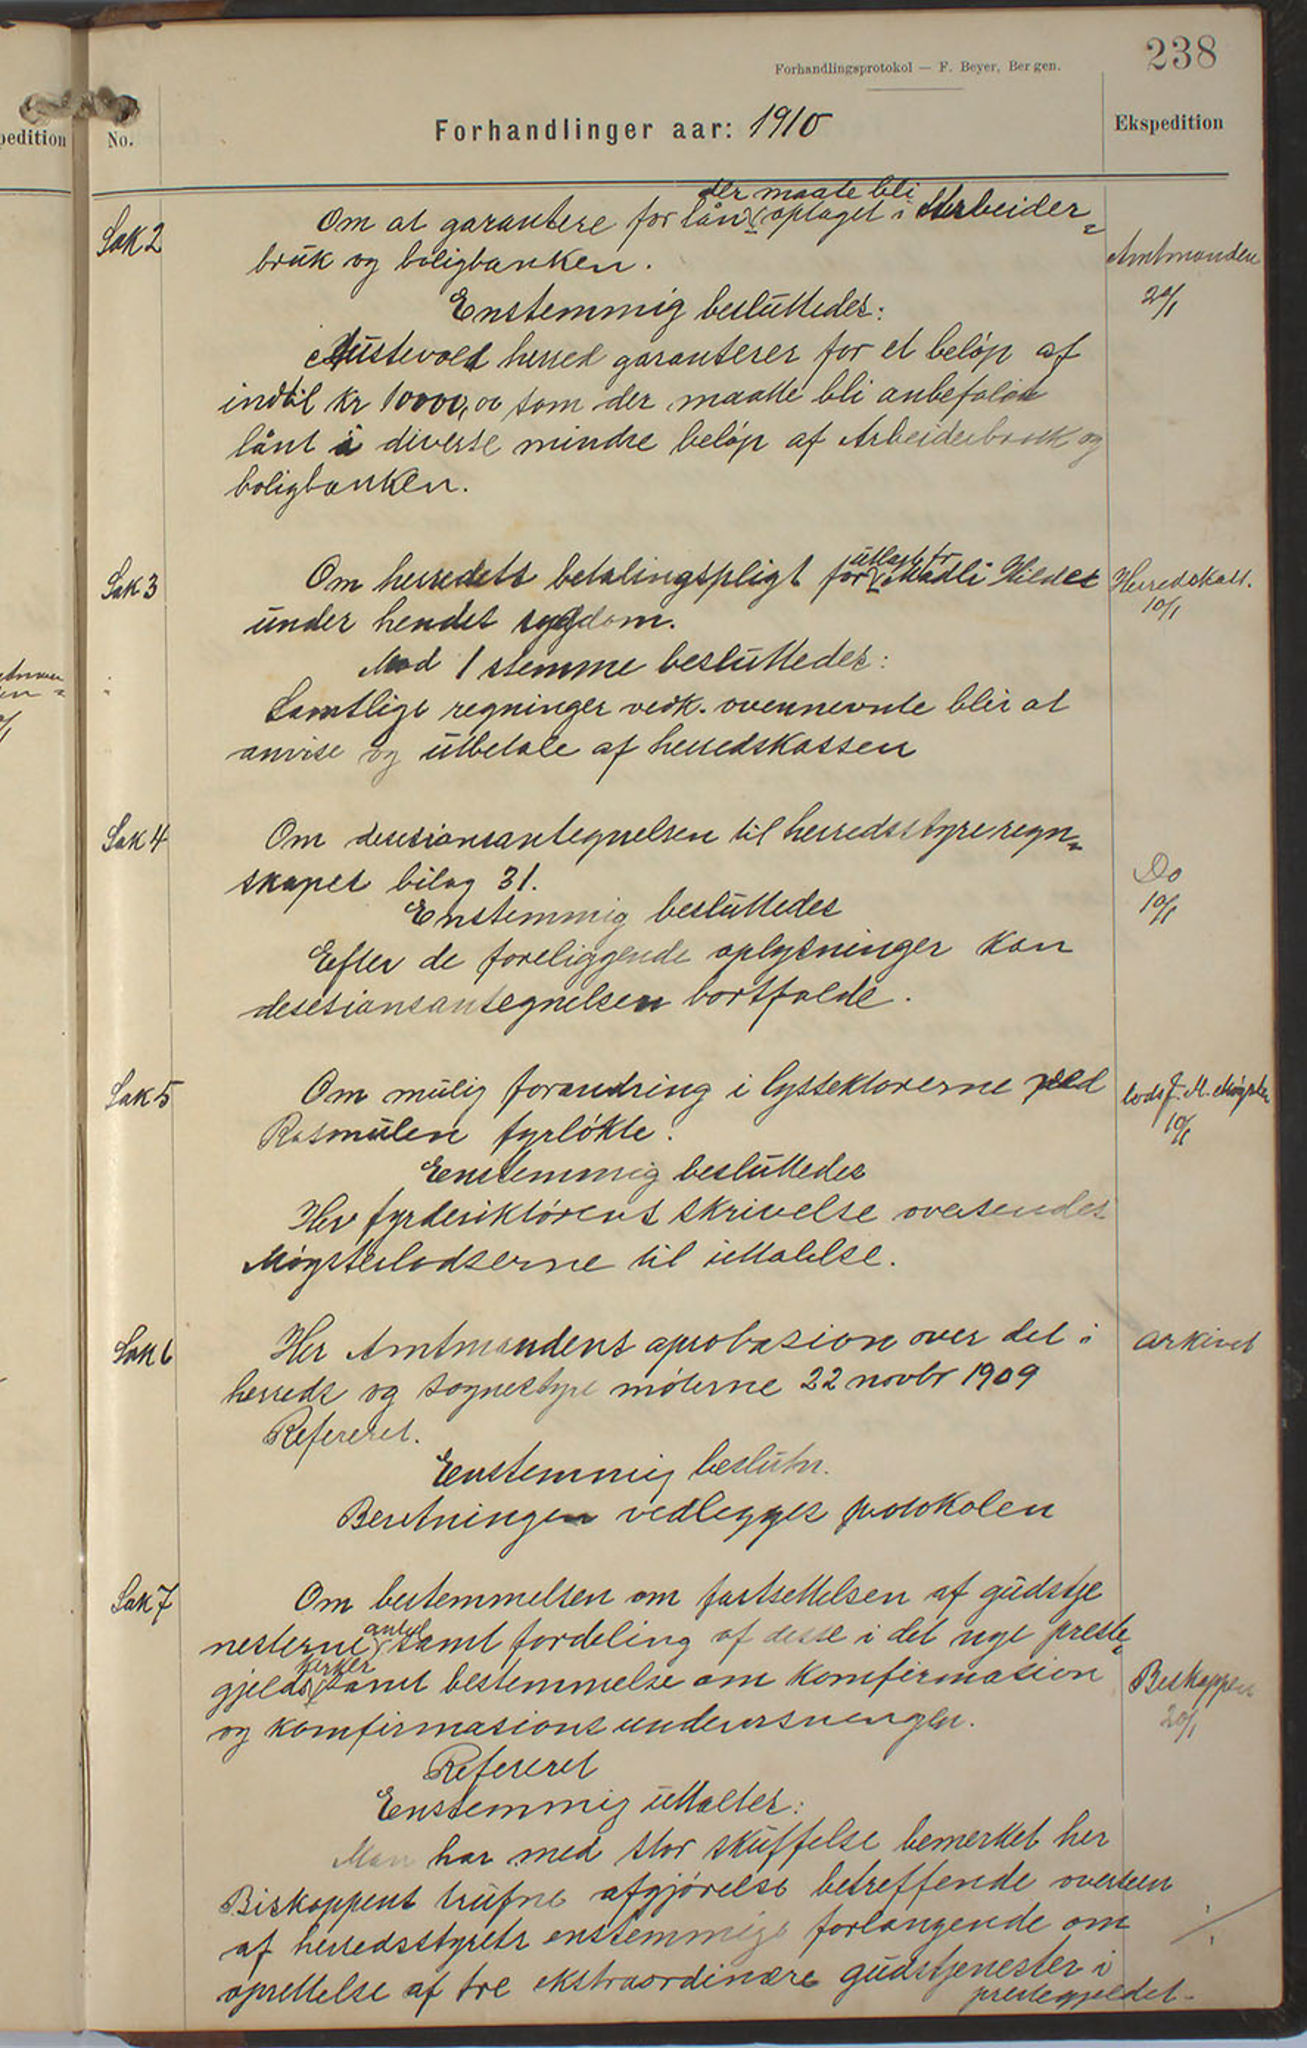 238
Forhandlingsprotokol — F. Beyer, Bergen.
pedition No. Forhandlinger aar: 1910 Ekspedition
Sak 2 Om at garantere for lån der maate bli optaget i Arbeider-
bruk og boligbanken.
Amtmanden
20/1
Enstemmig besluttedes:
Austevold herred garanterer for et beløp af
indtil kr 10000,00 som der maatte bli anbefalet
lånt i diverse mindre beløp af Arbeiderbruk og
boligbanken.
Sak 3 Om herredets betalingspligt for utlagt for Madli Hildes
under hendes sygdom.
Herredskass.
10/1
Mod 1 stemme besluttedes:
Samtlige regninger vedk. ovennevnte blir at
anvise og utbetale af herredskassen
Sak 4 Om desesionsantegnelsen til herredsstyreregn-
skapet bilag 31.
Do
10/1
Enstemmig besluttedes
Efter de foreliggende oplysninger kan
desesionsantegnelsen bortfalde.
Sak 5 Om mulig forandring i lyssektorerne ved
Rasmulen fyrløkte.
lods J. M. Møgster
10/1
Enstemmig besluttedes
Her fyrderiktørens skrivelse oversendes
Møgsterlodserne til uttalelse.
Sak 6 Her Amtmandens aprobasion over det i
herreds og sognestyre møterne 22 novbr 1909
arkivet
Refereret.
Enstemmig beslutn.
Beretningen vedlegges protokolen
Sak 7 Om bestemmelsen om fastsettelsen af gudstje
nesterne antal samt fordeling af desse i det nye preste-
gjelds kerker samt bestemmelse om komfirmasion
og komfirmasionsundervsningen.
Biskoppen
20/1
Refereret
Enstemmig uttaltes:
Man har med stor skuffelse bemerket her
Biskoppens trufne afgjørelse betreffende overseen
af herredsstyrets enstemmige forlangende om
oprettelse af tre ekstraordinære gudstjenester i
prestegjeldet-